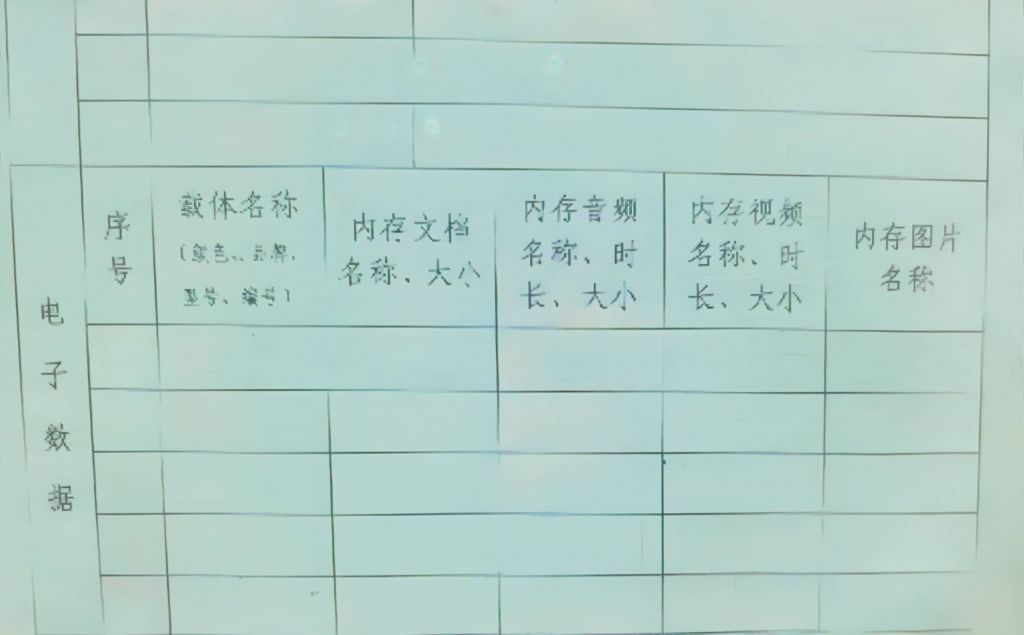 电子数据
序号
载体名称
(颜色、品牌、
型号、编号)
内存文档
名称、大小
内存音频
名称、时
长、大小
内存视频
名称、时
长、大小
内存图片
名称